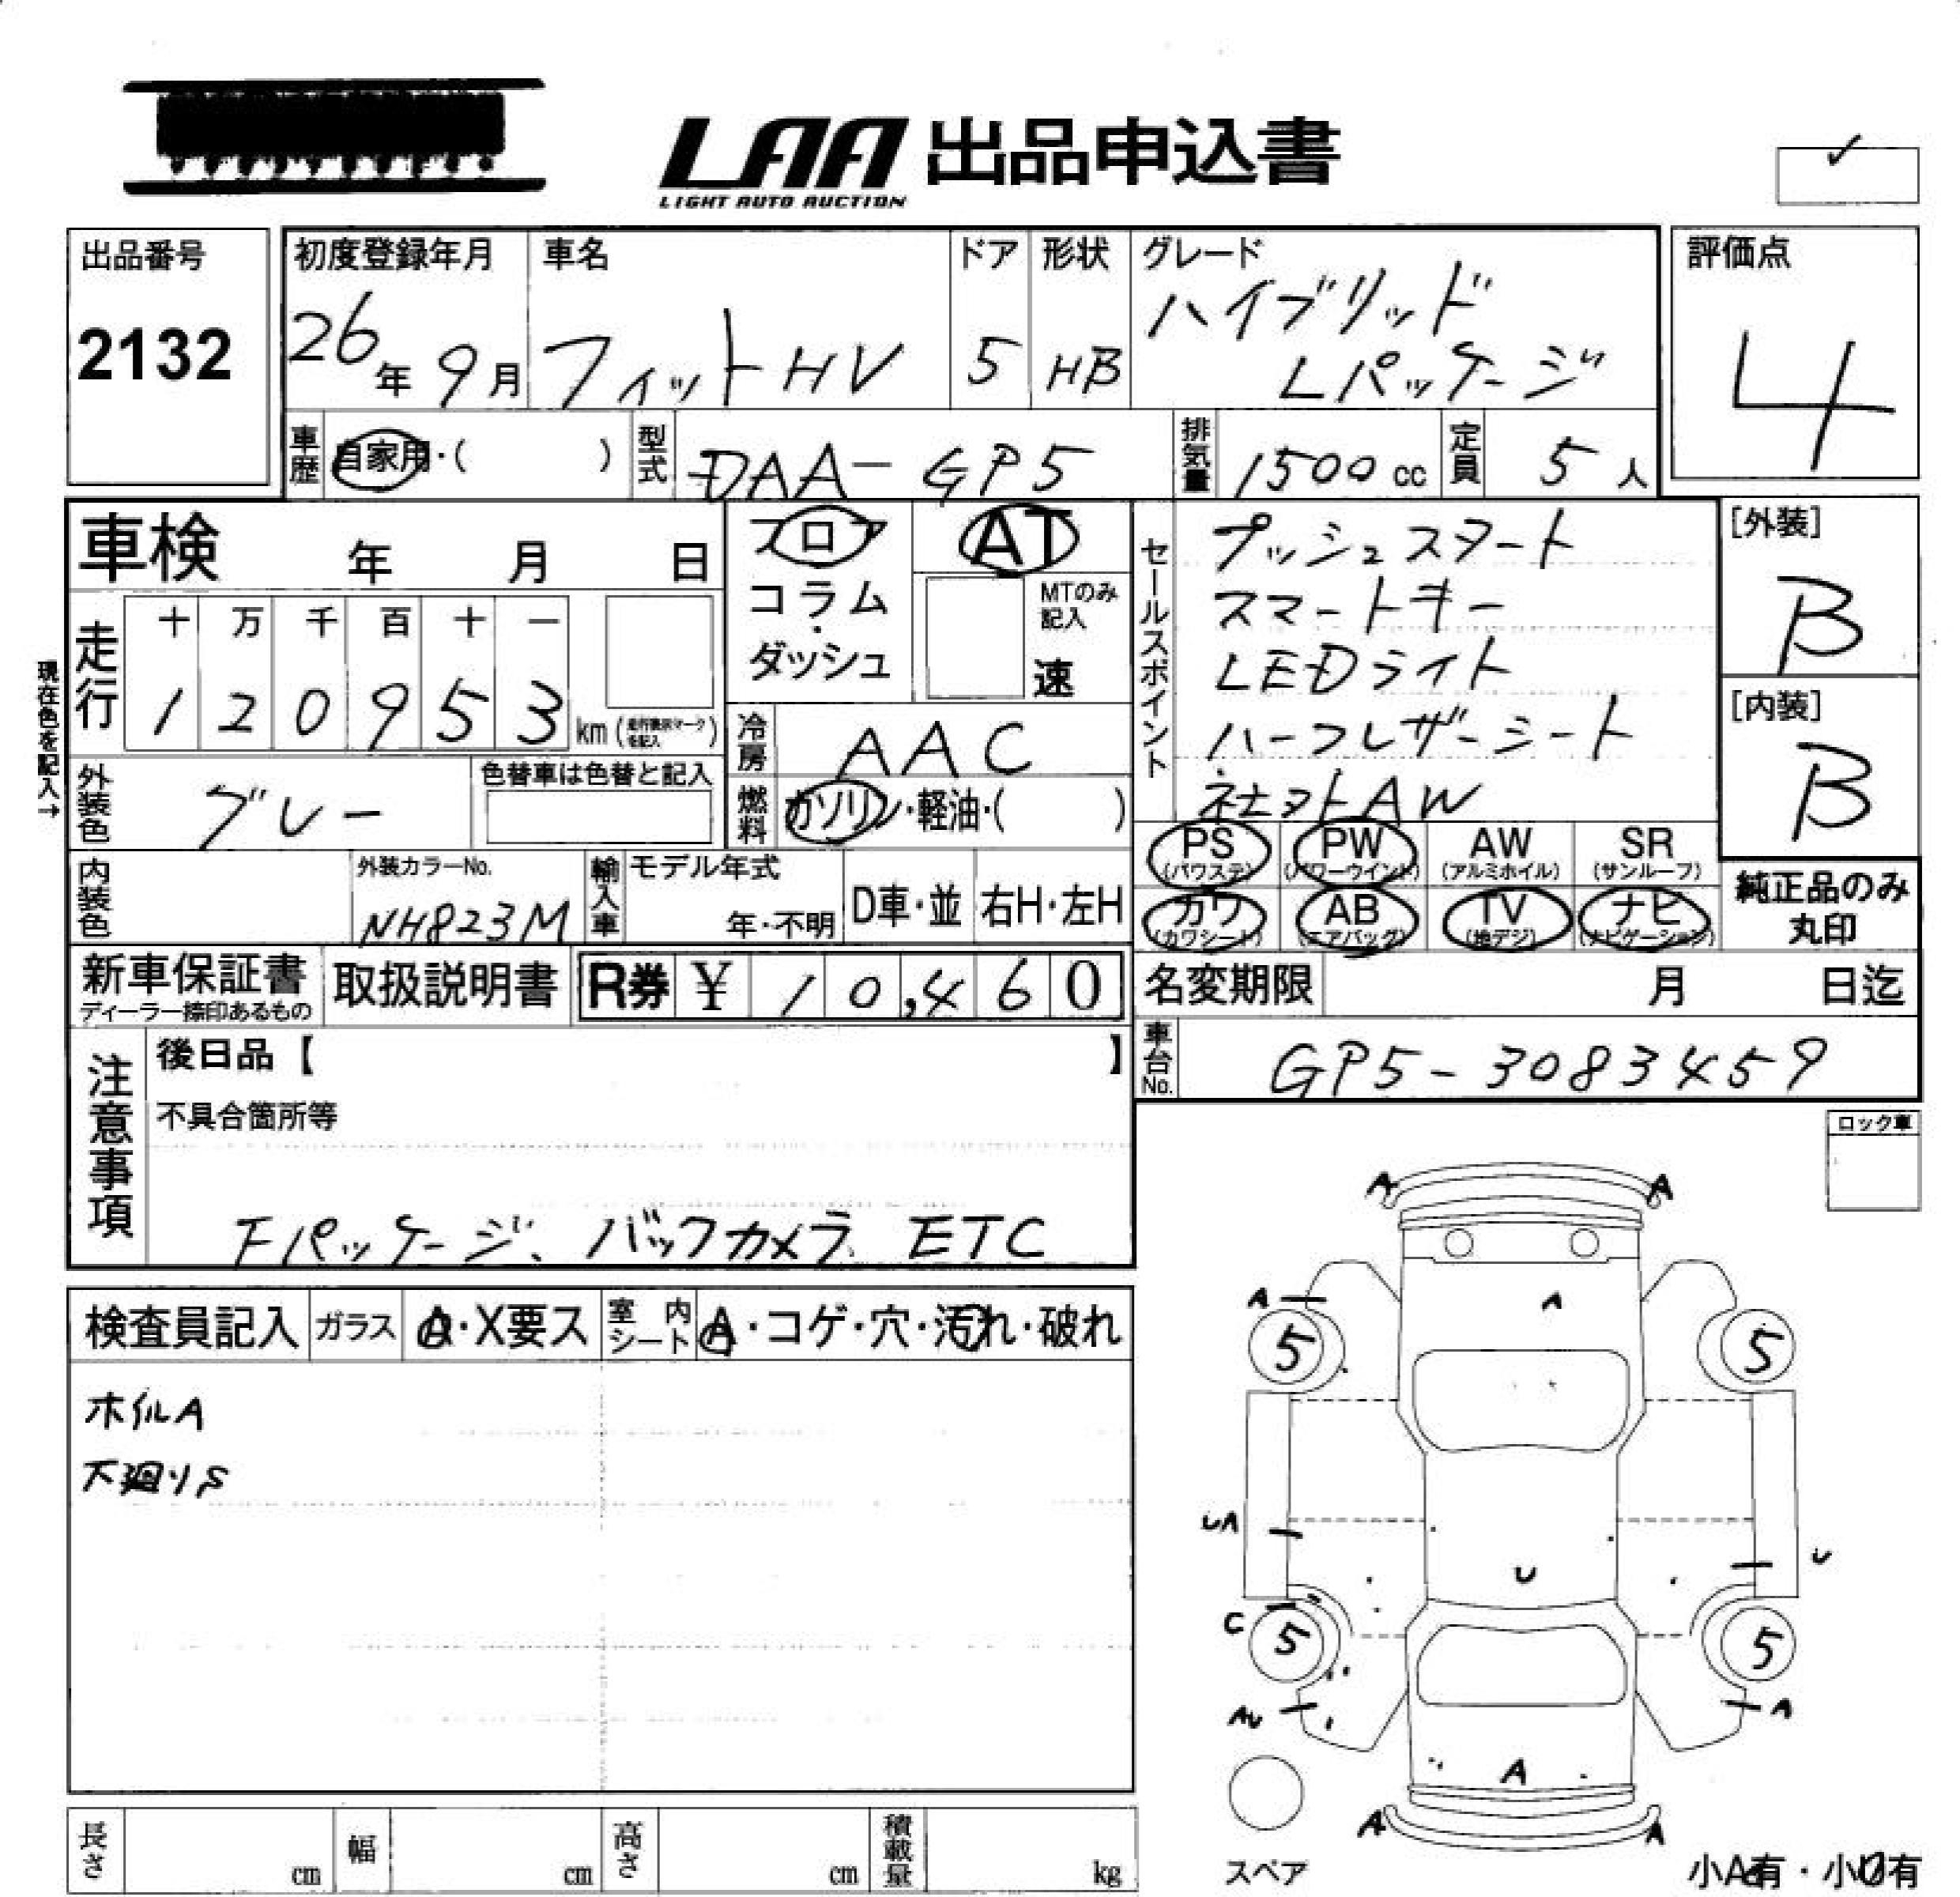 LAA 出品申込書
LIGHT AUTO AUCTION
✓
出品番号
2132
初度登録年月
26年 9月
車名
フィットHV
ドア
5
形状
HB
グレード
ハイブリッド
Lパッケージ
評価点
4
車歴
自家用・( )
型式
DAA-GP5
排気量
1500 cc
定員
5 人
車検 年 月 日
フロア
コラム
・
ダッシュ
AT
MTのみ
記入
速
セールスポイント
プッシュスタート
スマートキー
LEDライト
ハーフレザーシート
社外AW
[外装]
B
[内装]
B
現在色を記入→
走行
十 万 千 百 十 一
1 2 0 9 5 3 km (走行表示マークを記入)
冷房
AAC
外装色
グレー
色替車は色替と記入
燃料
ガソリン・軽油・( )
PS
(パワステ)
PW
(パワーウインド)
AW
(アルミホイル)
SR
(サンルーフ)
カワ
(カワシート)
AB
(エアバッグ)
TV
(地デジ)
ナビ
(ナビゲーション)
純正品のみ
丸印
内装色
外装カラーNo.
NH823M
輸入車
モデル年式
年・不明
D車・並
右H・左H
新車保証書
ディーラー捺印あるもの
取扱説明書
R券 ¥ 10,460
名変期限 月 日迄
車台No.
GP5-3083459
注意事項
後日品【 】
不具合箇所等
Fパッケージ、バックカメラ、ETC
ロック車
検査員記入
ガラス
A・X要ス
室内シート
A・コゲ・穴・汚れ・破れ
ホイルA
下廻りS
A A
A A
5 5
UA U
U
C 5 5
AU A
A
A A
スペア
小A有・小U有
長さ cm
幅 cm
高さ cm
積載量 kg